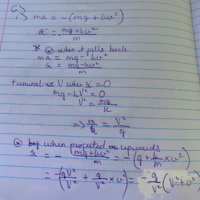 i) ma = -(mg + kv²)
ẍ = -(mg + kv²)/m
* when it falls back
ma = mg - kv²
ẍ = (mg - kv²)/m
Terminal at V when ẍ = 0
mg - kV² = 0
V² = mg/k
⇒ m/k = V²/g
when projected upwards
ẍ = -(mg + kv²)/m = -(g + k/m × v²)
= -(gV²/V² + g/V² × v²) = -g/V² (V² + v²)